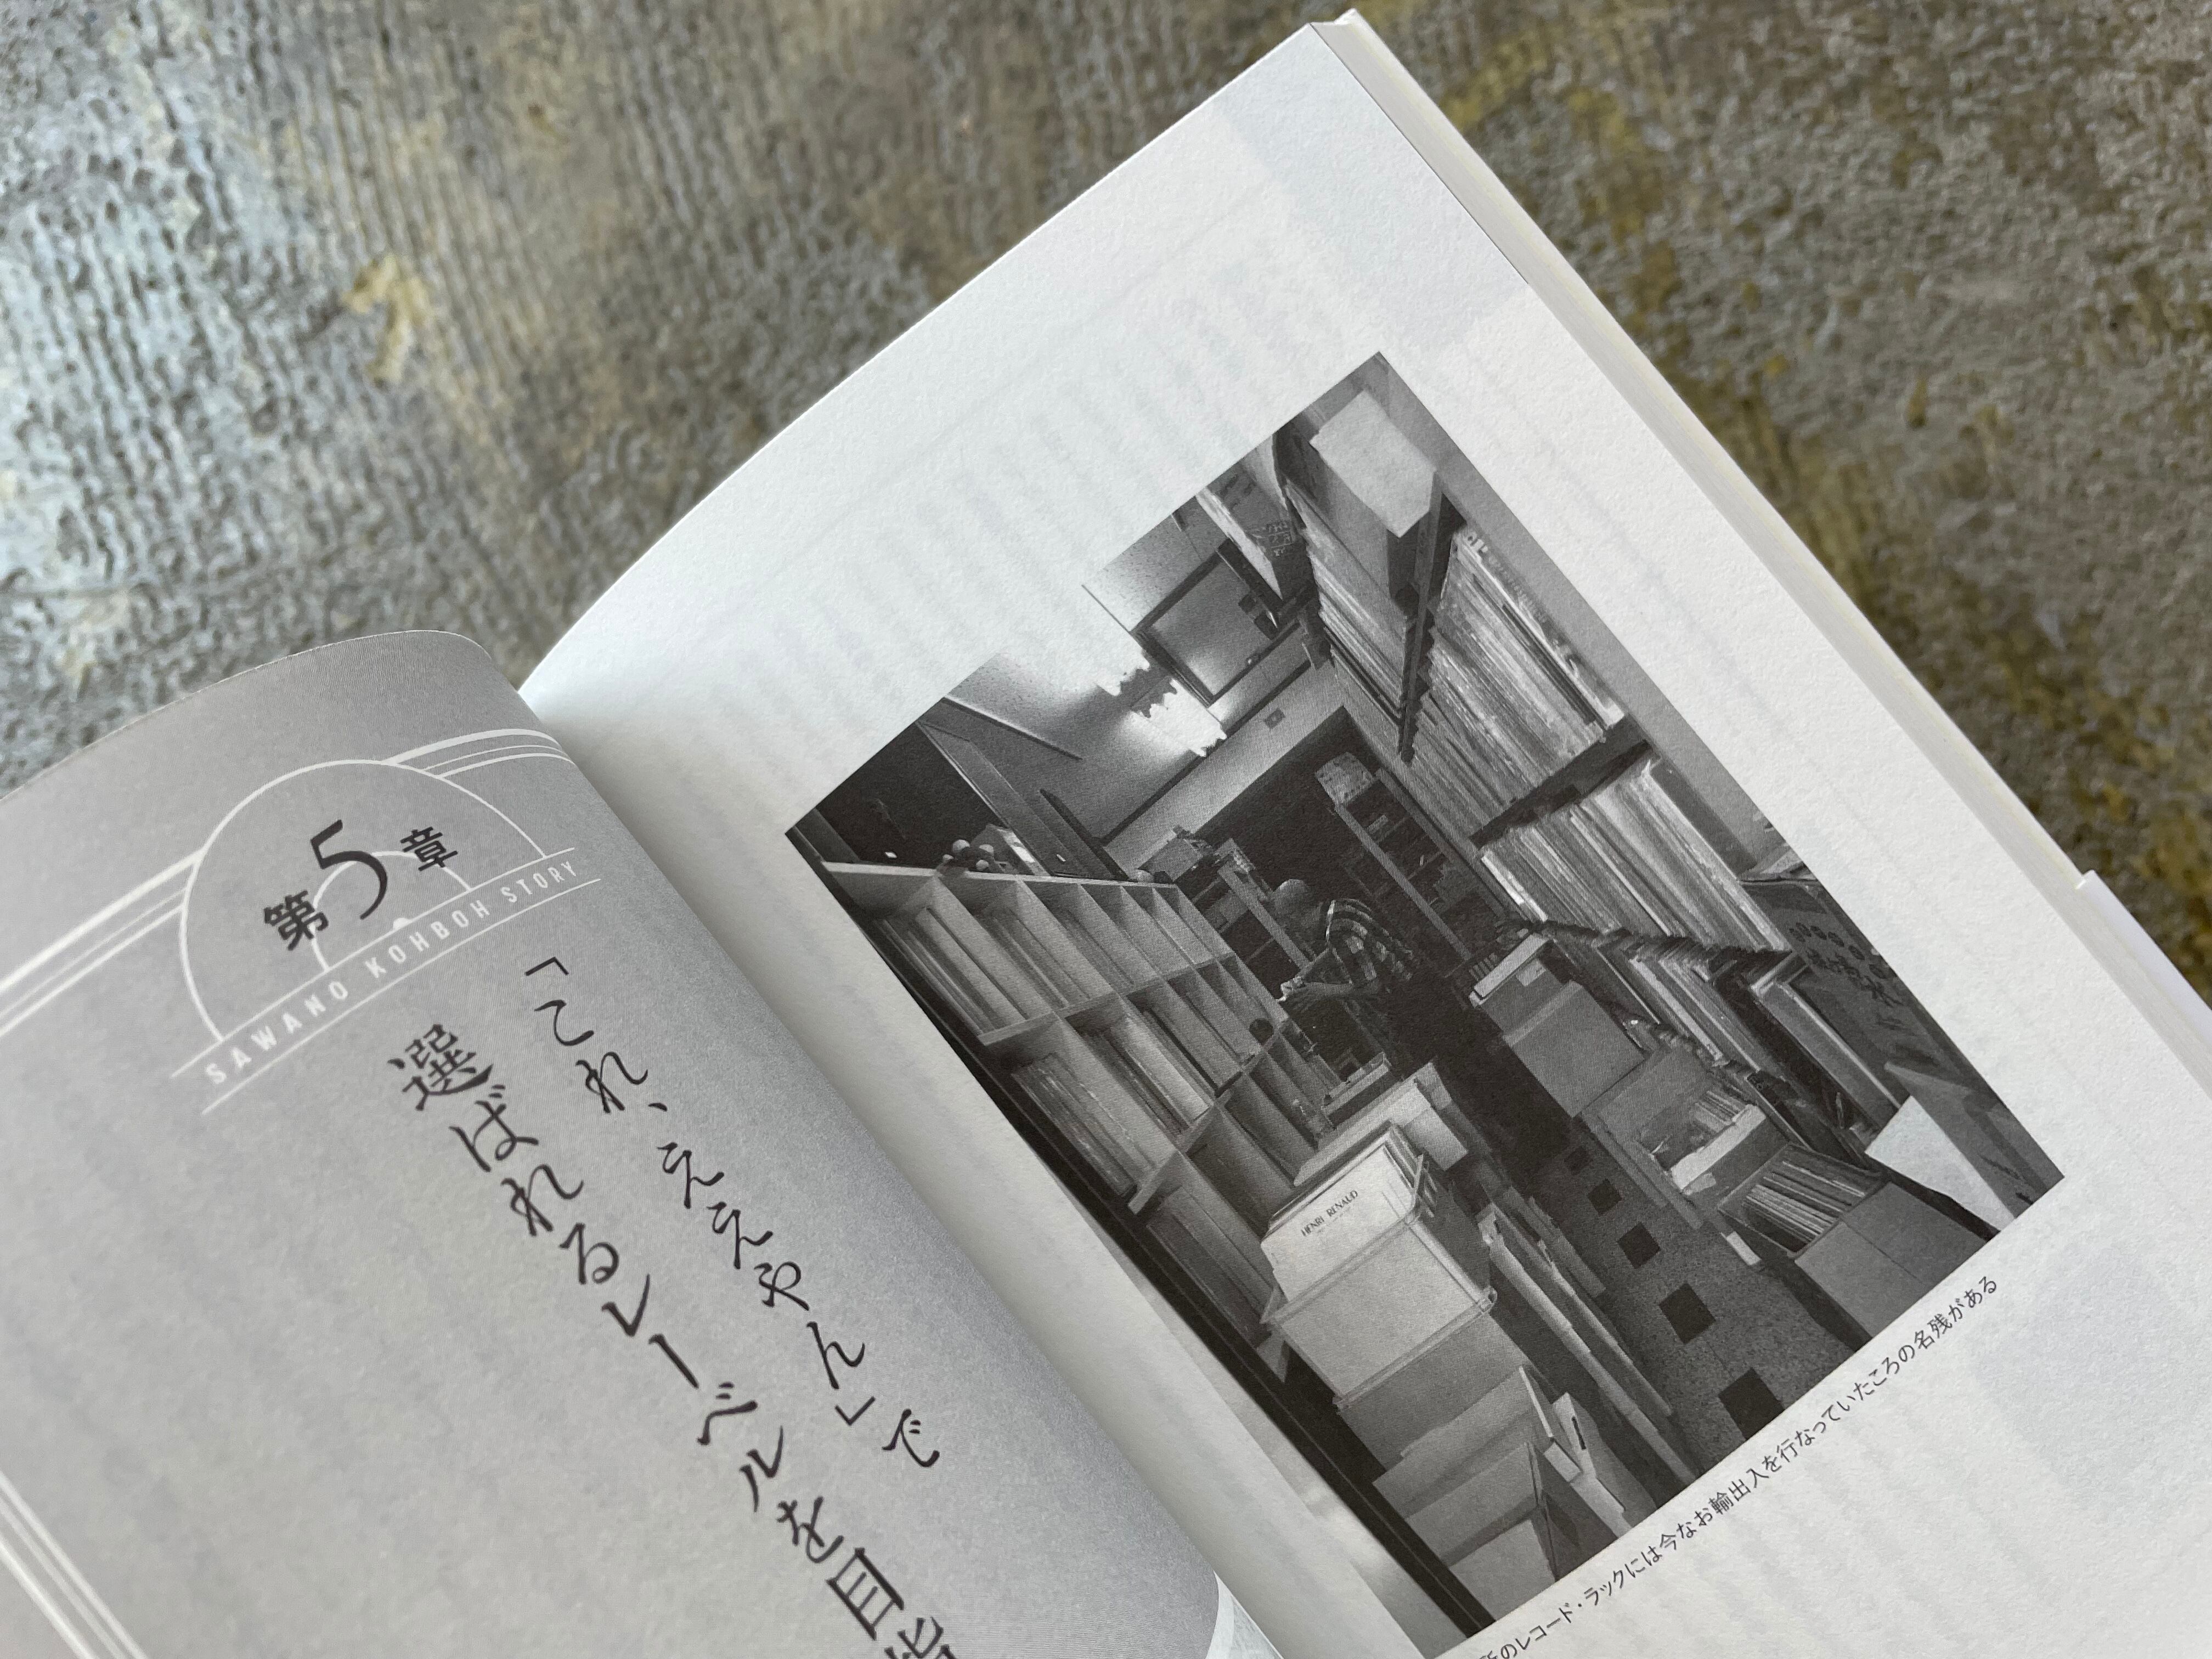 第5章
SAWANO KOHBOH STORY
「これ、ええやん」で
選ばれるレーベルを目指
HENRI RENAUD
のレコード・ラックには今なお輸出入を行なっていたころの名残がある